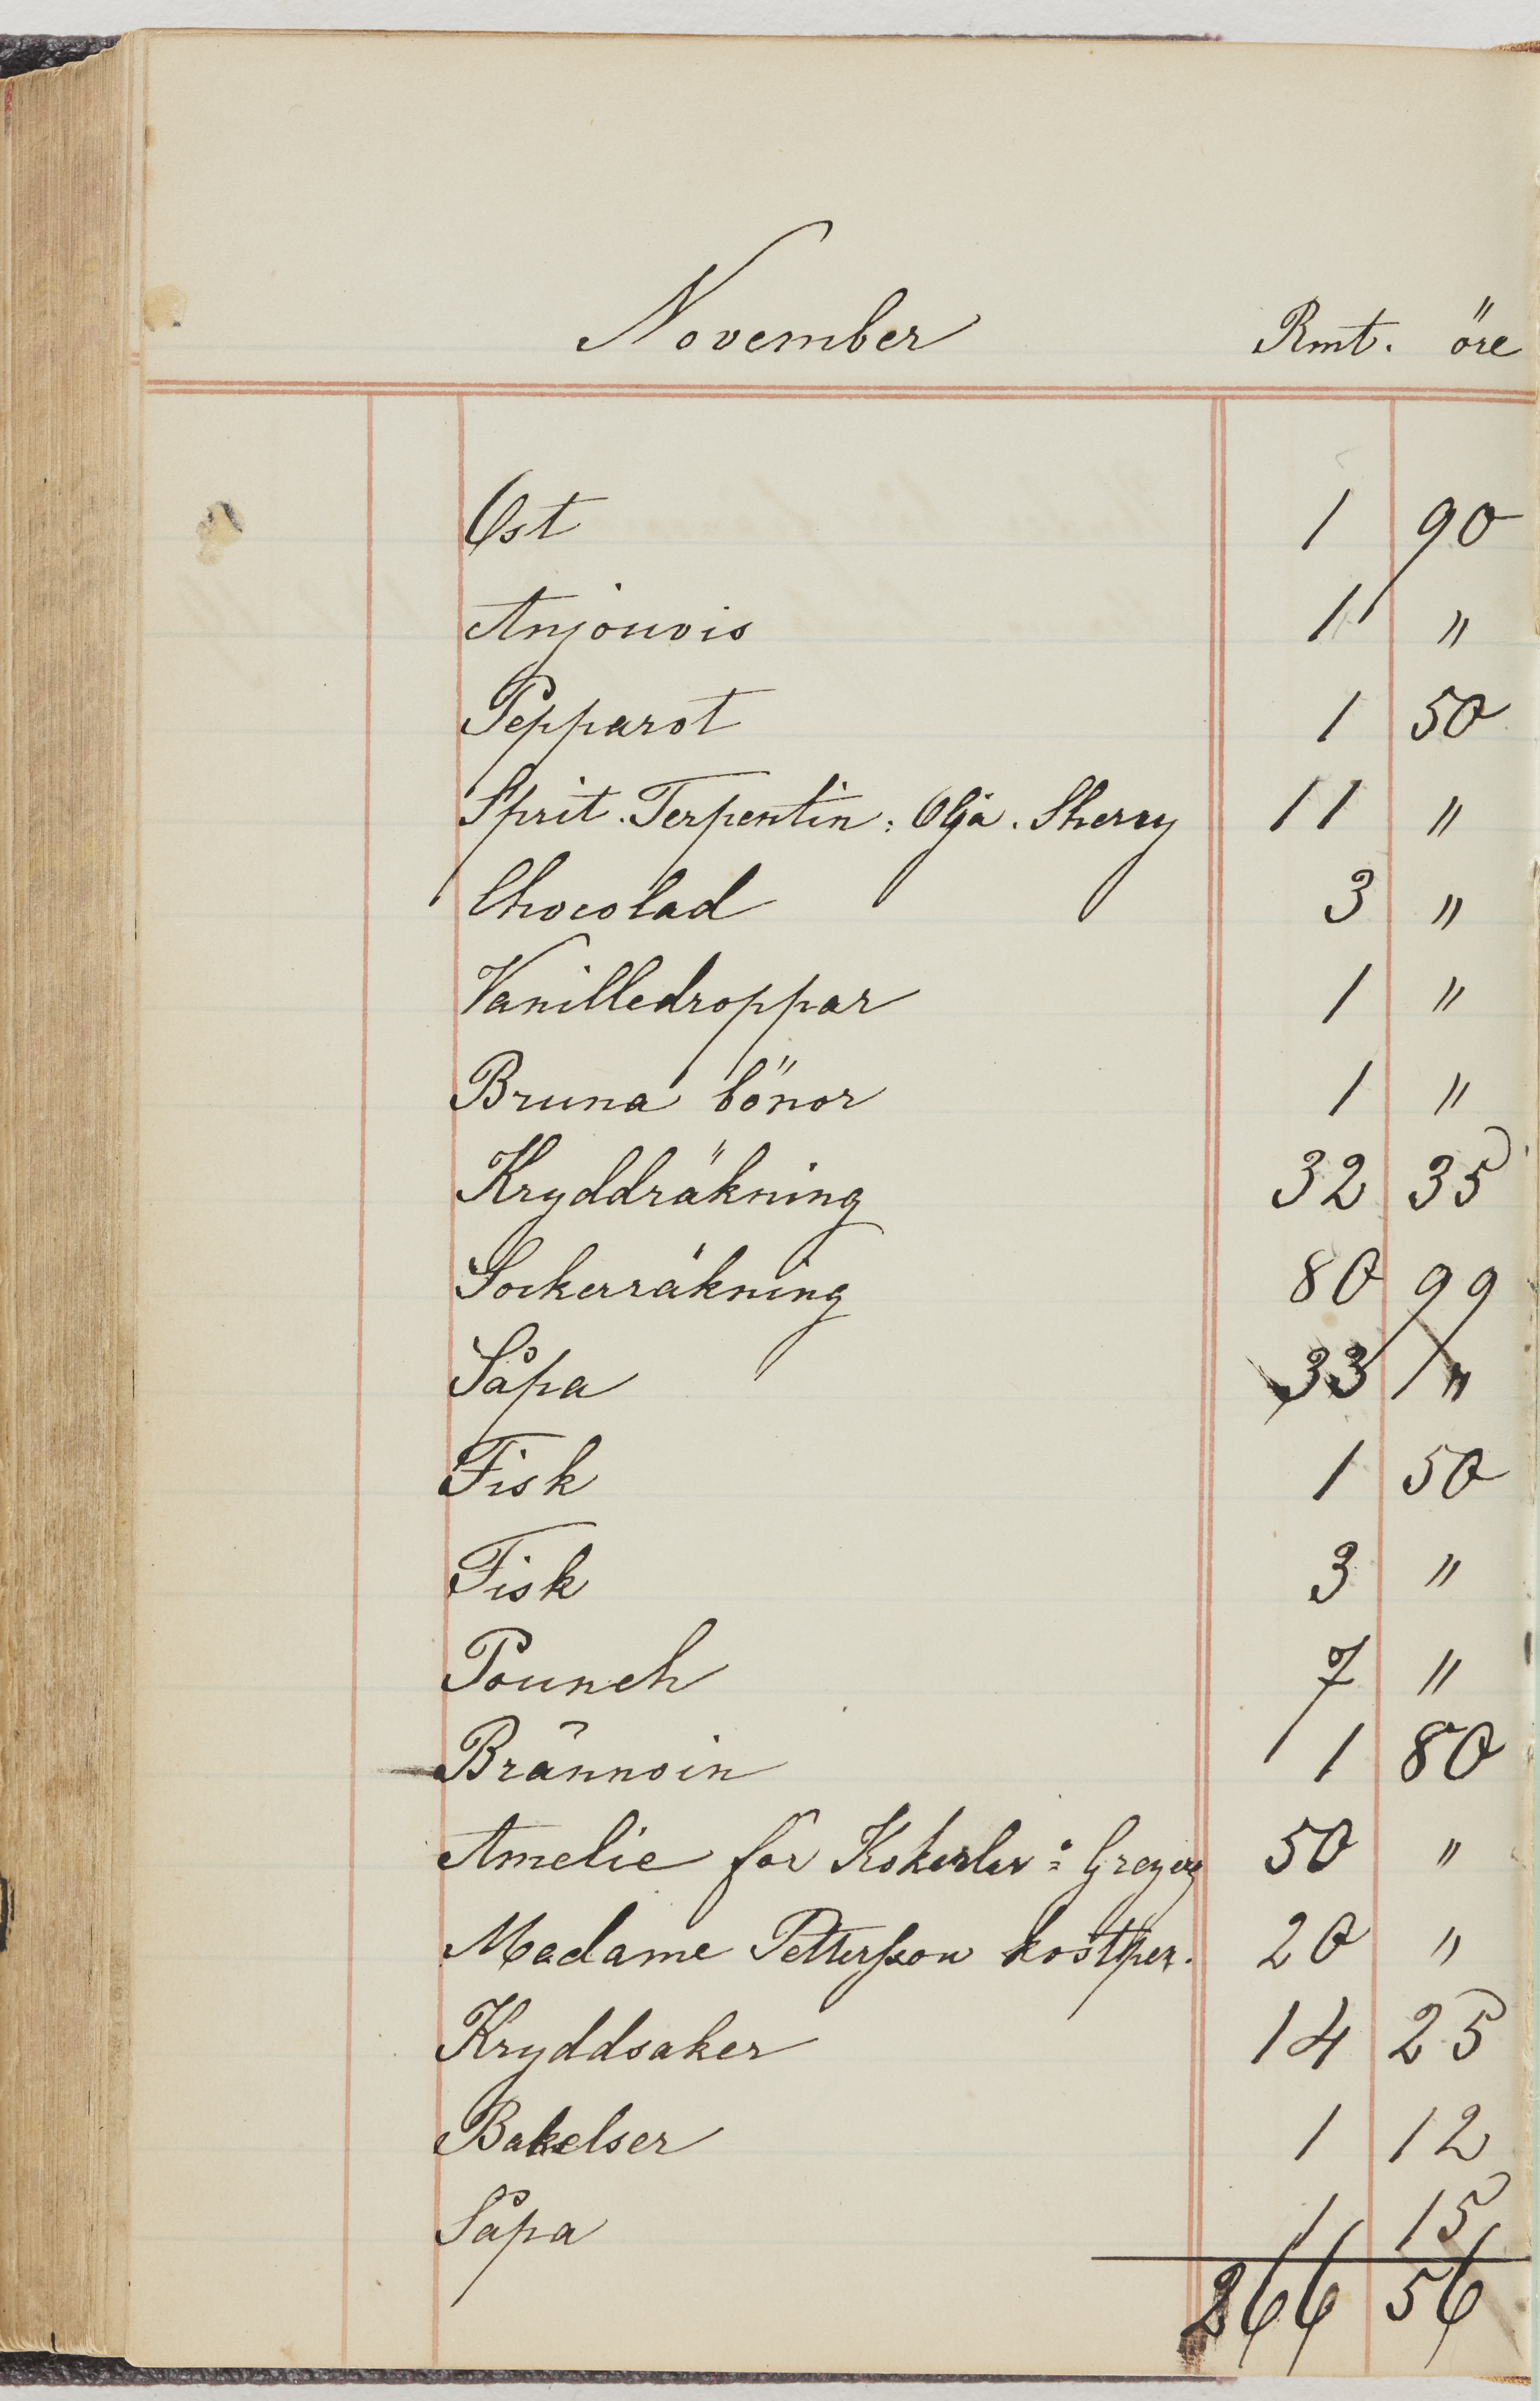 November Rmt. öre
Ost 1 90
Anjouvis 1 "
Pepparot 1 50
Sprit. Terpentin: Olja. Sherry 11 "
Chocolad 3 "
Vanilledroppar 1 "
Bruna bönor 1 "
Kryddräkning 32 35
Sockerräkning 80 99
Såpa 33 "
Fisk 1 50
Fisk 3 "
Pounch 7 "
Brännvin 1 80
Amelie för 50 "
Madame Pettersson kostper. 20 "
Kryddsaker 14 25
Bakelser 1 12
Såpa 1 15
266 56